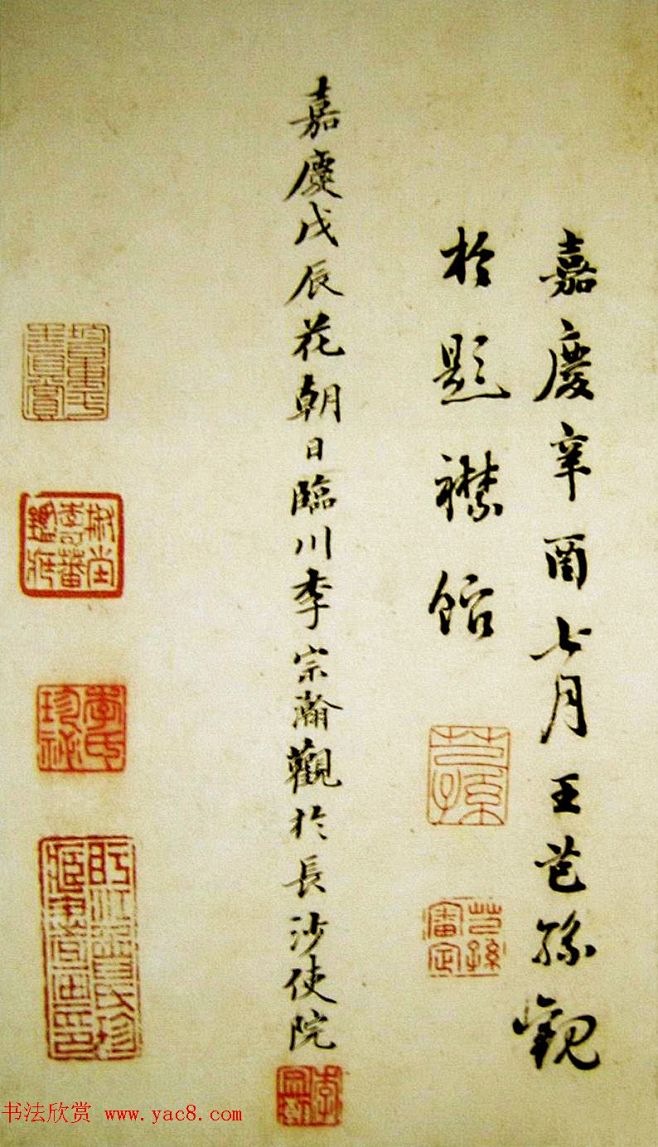 嘉慶辛酉七月王芑孫觀
於題襟館
芑孫
芑孫審定
嘉慶戊辰花朝日臨川李宗瀚觀於長沙使院
李氏珍祕
书法欣赏 www.yac8.com